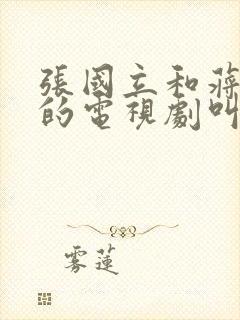 張國立和蔣
的電視劇叫
雾蓮